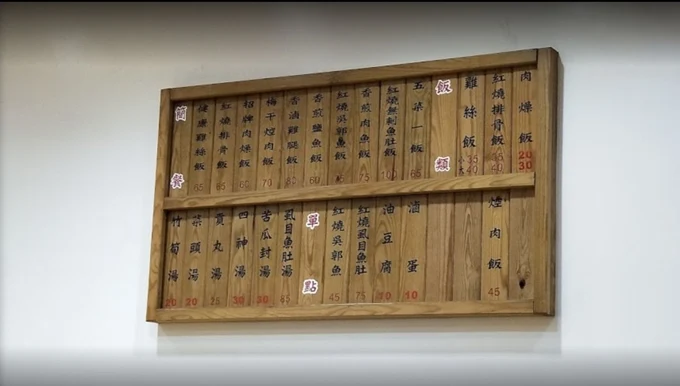 肉燥飯 20 30
紅燒排骨飯
雞絲飯 35
飯類
五菜一飯 65
紅燒無刺魚肚飯 100
香煎肉魚飯 75
紅燒吳郭魚飯
香煎鹽魚飯 60
香滷雞腿飯
梅干焢肉飯 70
招牌肉燥飯 60
紅燒排骨飯 65
健康雞絲飯 65
簡餐
焢肉飯 45
滷蛋 10
油豆腐 10
紅燒虱目魚肚 75
紅燒吳郭魚 45
單點
虱目魚肚湯 65
苦瓜封湯 30
四神湯 30
貢丸湯 25
菜頭湯 20
竹筍湯 20